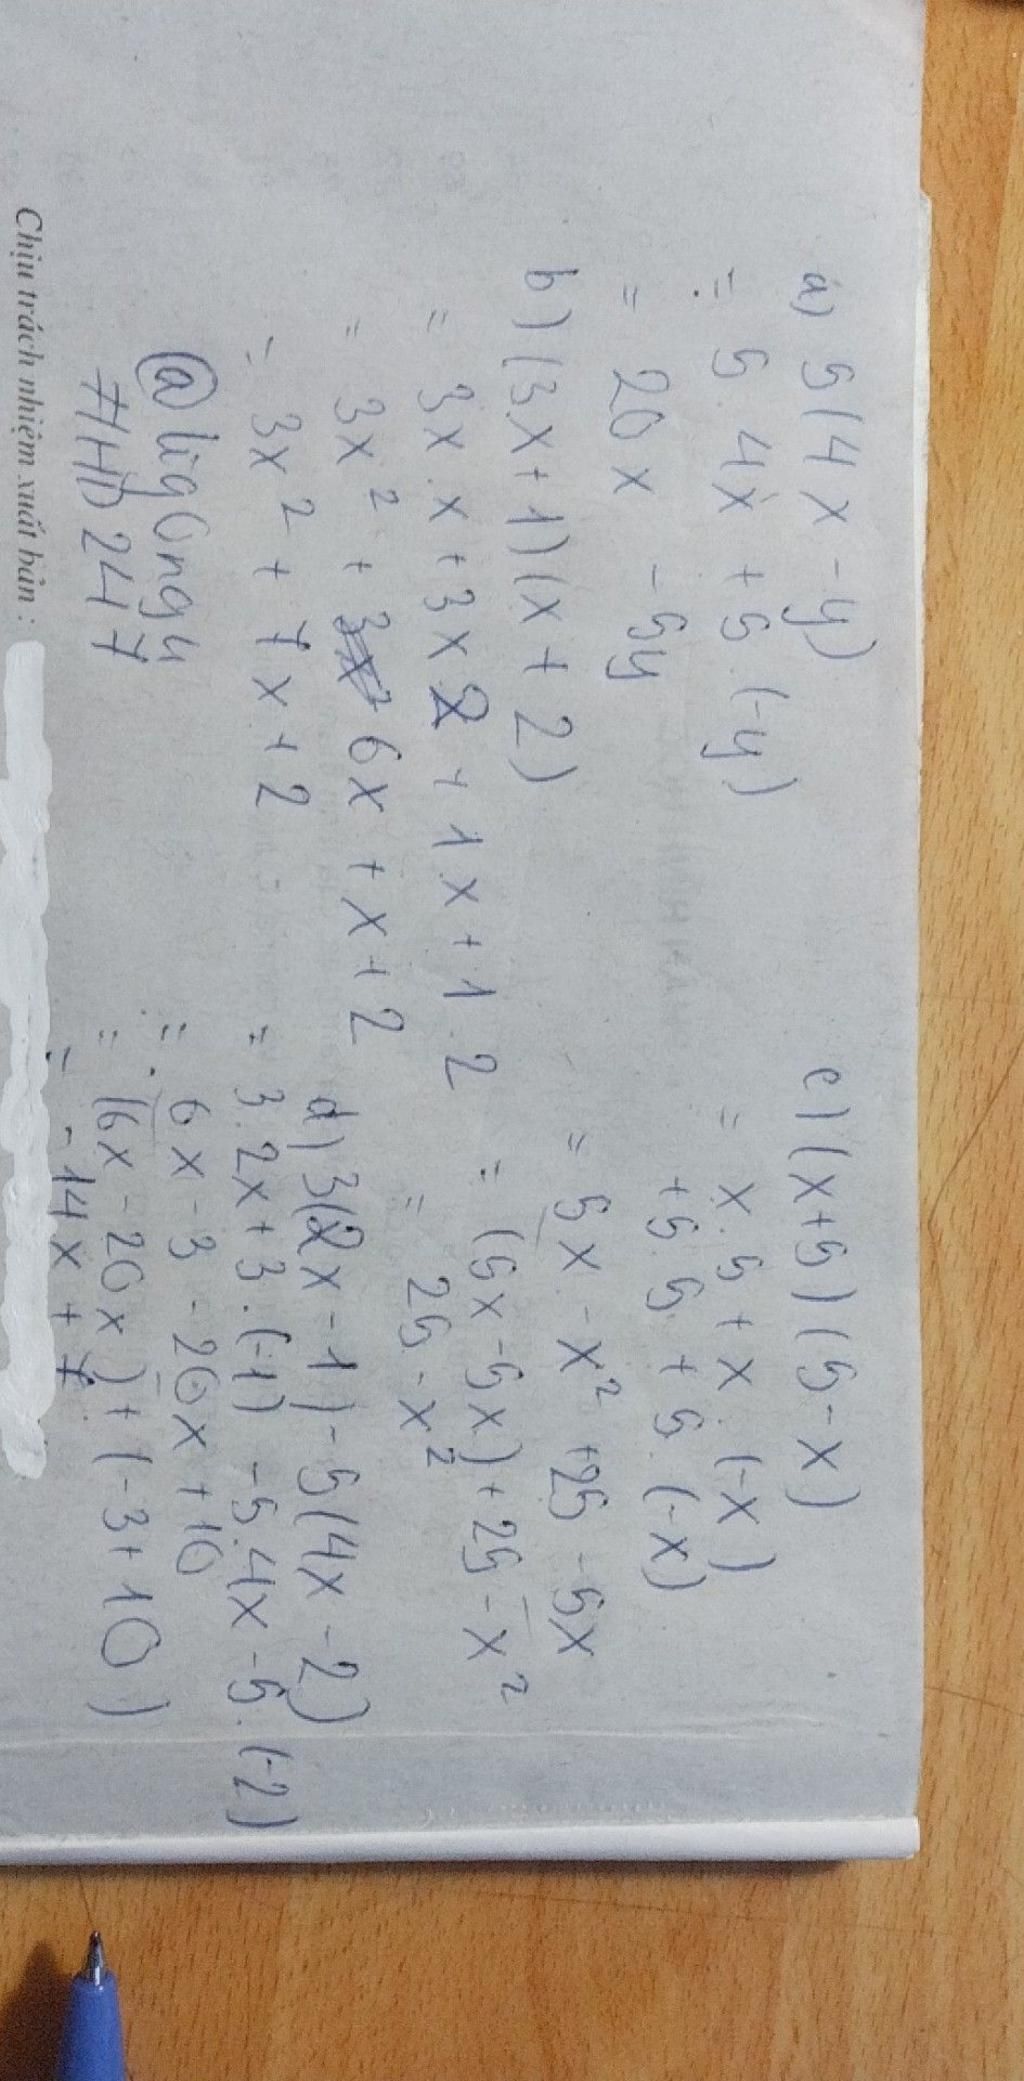 a) 5(4x - y)
= 5 . 4x + 5 . (-y)
= 20x - 5y
b) (3x + 1)(x + 2)
= 3x . x + 3x . 2 + 1x + 1 . 2
= 3x² + 6x + x + 2
= 3x² + 7x + 2
@ligongu
#HD247
c) (x+5)(5-x)
= x . 5 + x . (-x)
+ 5 . 5 + 5 . (-x)
= 5x - x² + 25 - 5x
= (5x - 5x) + 25 - x²
= 25 - x²
d) 3(2x - 1) - 5(4x - 2)
= 3 . 2x + 3 . (-1) - 5 . 4x - 5 . (-2)
= 6x - 3 - 20x + 10
= (6x - 20x) + (-3 + 10)
= -14x + 7
Chịu trách nhiệm xuất bản :